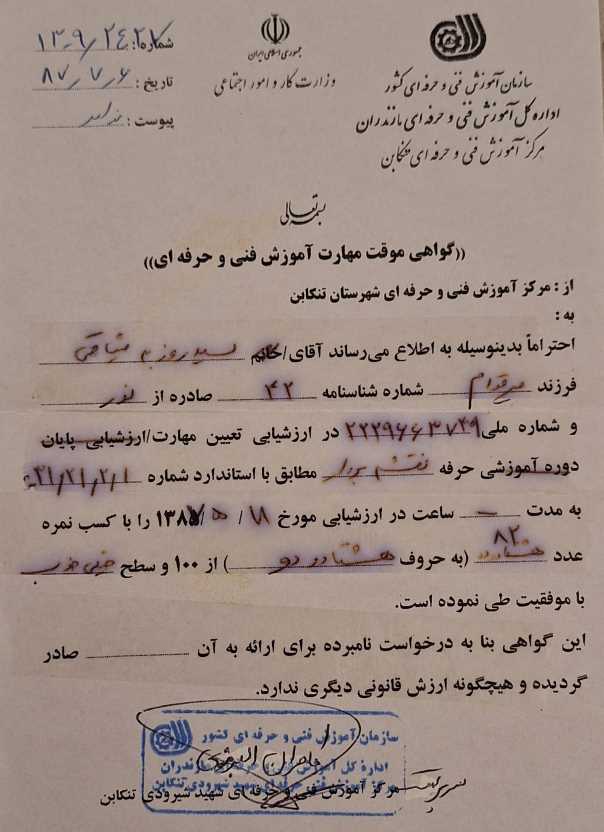 جمهوری اسلامی ایران
وزارت کار و امور اجتماعی
سازمان آموزش فنی و حرفه ای کشور
اداره کل آموزش فنی و حرفه ای مازندران
مرکز آموزش فنی و حرفه ای تنکابن
شماره:
تاریخ: ۸۷٫۷٫۶
پیوست: ندارد
بسمه تعالی
((گواهی موقت مهارت آموزش فنی و حرفه ای))
از : مرکز آموزش فنی و حرفه ای شهرستان تنکابن
به :
احتراماً بدینوسیله به اطلاع می‌رساند آقای/خانم سید روزبه
فرزند شماره شناسنامه ۴۲ صادره از نور
و شماره ملی ۲۲۲۹۶۶۳۷۴۹ در ارزشیابی تعیین مهارت/ارزشیابی پایان
دوره آموزشی حرفه نقشه بردار مطابق با استاندارد شماره
به مدت ـ ساعت در ارزشیابی مورخ ۱۸ / ۵ /۱۳۸۷ را با کسب نمره
۸۲
عدد هشتاد و دو (به حروف هشتاد و دو) از ۱۰۰ و سطح خیلی خوب
با موفقیت طی نموده است.
این گواهی بنا به درخواست نامبرده برای ارائه به آن صادر
گردیده و هیچگونه ارزش قانونی دیگری ندارد.
سازمان آموزش فنی و حرفه ای کشور
اداره کل آموزش فنی و حرفه ای مازندران
سرپرست مرکز آموزش فنی و حرفه ای شهید شیرودی تنکابن